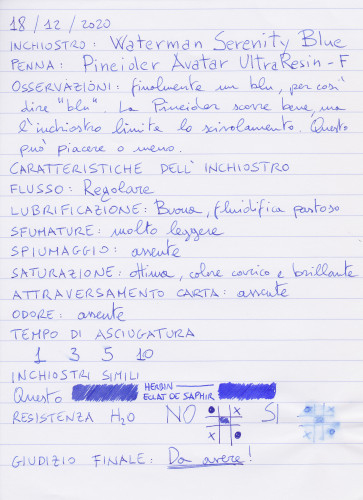 18/12/2020
INCHIOSTRO: Waterman Serenity Blue
PENNA: Pineider Avatar UltraResin - F
OSSERVAZIONI: finalmente un blu, per così
dire "blu". La Pineider scorre bene, ma
l'inchiostro limita lo scivolamento. Questo
può piacere o meno.
CARATTERISTICHE DELL'INCHIOSTRO
FLUSSO: Regolare
LUBRIFICAZIONE: Buona, fluidifica pastoso
SFUMATURE: molto leggere
SPIUMAGGIO: assente
SATURAZIONE: ottima, colore carico e brillante
ATTRAVERSAMENTO CARTA: assente
ODORE: assente
TEMPO DI ASCIUGATURA
1 3 5 10
INCHIOSTRI SIMILI
Questo HERBIN ECLAT DE SAPHIR
RESISTENZA H2O NO SI
GIUDIZIO FINALE: Da avere!